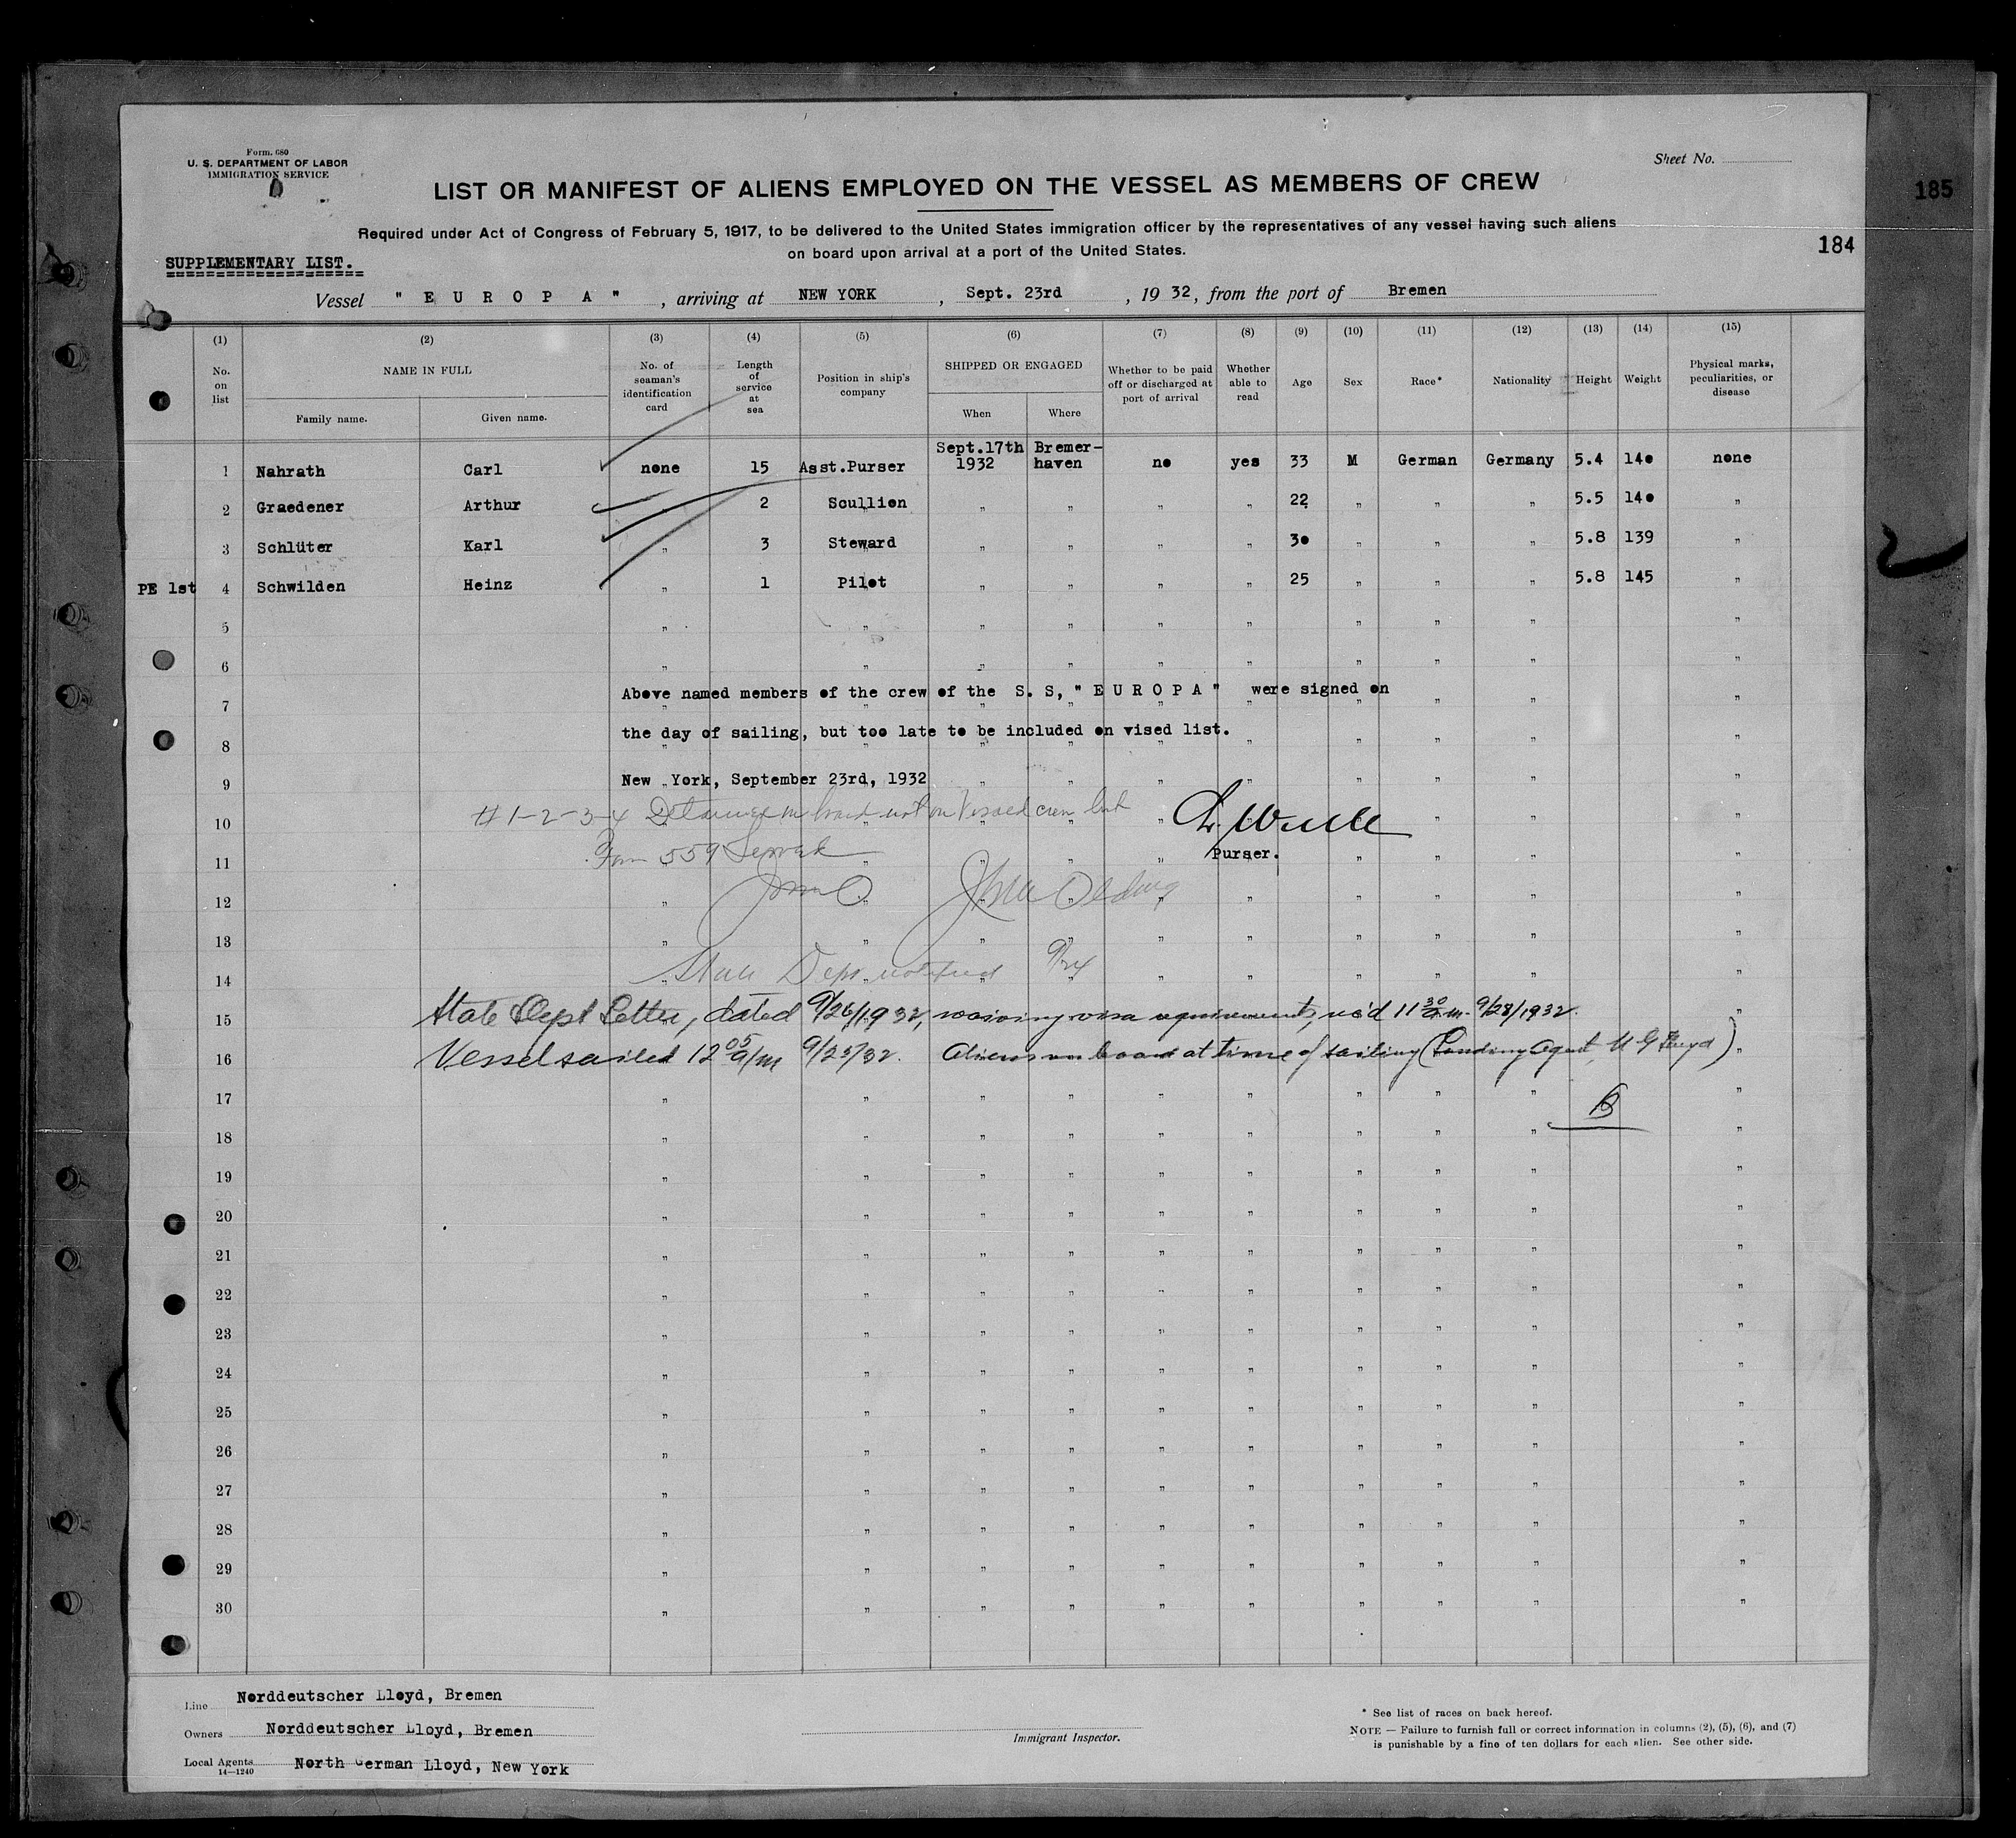 Form. 680
U. S. DEPARTMENT OF LABOR
IMMIGRATION SERVICE
Sheet No.
185
LIST OR MANIFEST OF ALIENS EMPLOYED ON THE VESSEL AS MEMBERS OF CREW
Required under Act of Congress of February 5, 1917, to be delivered to the United States immigration officer by the representatives of any vessel having such aliens
on board upon arrival at a port of the United States.
184
SUPPLEMENTARY LIST.
Vessel " E U R O P A " , arriving at NEW YORK , Sept. 23rd , 19 32, from the port of Bremen
(1) (2) (3) (4) (5) (6) (7) (8) (9) (10) (11) (12) (13) (14) (15)
No. on list NAME IN FULL Family name. Given name. No. of seaman's identification card Length of service at sea Position in ship's company SHIPPED OR ENGAGED When Where Whether to be paid off or discharged at port of arrival Whether able to read Age Sex Race* Nationality Height Weight Physical marks, peculiarities, or disease
1 Nahrath Carl none 15 Asst.Purser Sept.17th 1932 Bremer-haven no yes 33 M German Germany 5.4 140 none
2 Graedener Arthur " 2 Scullion " " " " 22 " " " 5.5 140 "
3 Schlüter Karl " 3 Steward " " " " 30 " " " 5.8 139 "
PE 1st 4 Schwilden Heinz " 1 Pilot " " " " 25 " " " 5.8 145 "
5 " " " " " " " " " "
6 " " " " " " " " " "
7 Above named members of the crew of the S. S, " E U R O P A " were signed on
8 the day of sailing, but too late to be included on vised list.
9 New York, September 23rd, 1932
10 # 1-2-3-4 Detained on board not on Visaed crew list
11 Form 559 Served Purser.
12
13
14 State Dept. notified 9/24
15 State Dept Letter, dated 9/26/1932, waiving visa requirements, rec'd 11 30 a.m. 9/28/1932.
16 Vessel sailed 12 05 a/m 9/25/32. Aliens on board at time of sailing (Landing Agent, N G Lloyd)
17 " " " " " " " " "
18 " " " " " " " " " "
19 " " " " " " " " " "
20 " " " " " " " " " "
21 " " " " " " " " " "
22 " " " " " " " " " "
23 " " " " " " " " " "
24 " " " " " " " " " "
25 " " " " " " " " " "
26 " " " " " " " " " "
27 " " " " " " " " " "
28 " " " " " " " " " "
29 " " " " " " " " " "
30 " " " " " " " " " "
Line Norddeutscher Lloyd, Bremen
Owners Norddeutscher Lloyd, Bremen
Local Agents North German Lloyd, New York
14—1240
Immigrant Inspector.
* See list of races on back hereof.
NOTE — Failure to furnish full or correct information in columns (2), (5), (6), and (7)
is punishable by a fine of ten dollars for each alien. See other side.